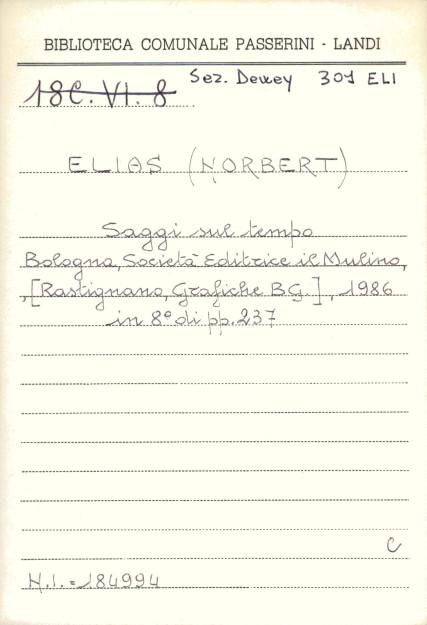 BIBLIOTECA COMUNALE PASSERINI - LANDI
18C. VI. 8 Sez. Dewey 301 ELI
ELIAS (NORBERT)
Saggi sul tempo
Bologna, Società Editrice il Mulino,
,[Rastignano, Grafiche B.G.], 1986
in 8° di pp. 237
C
N.I. = 184994